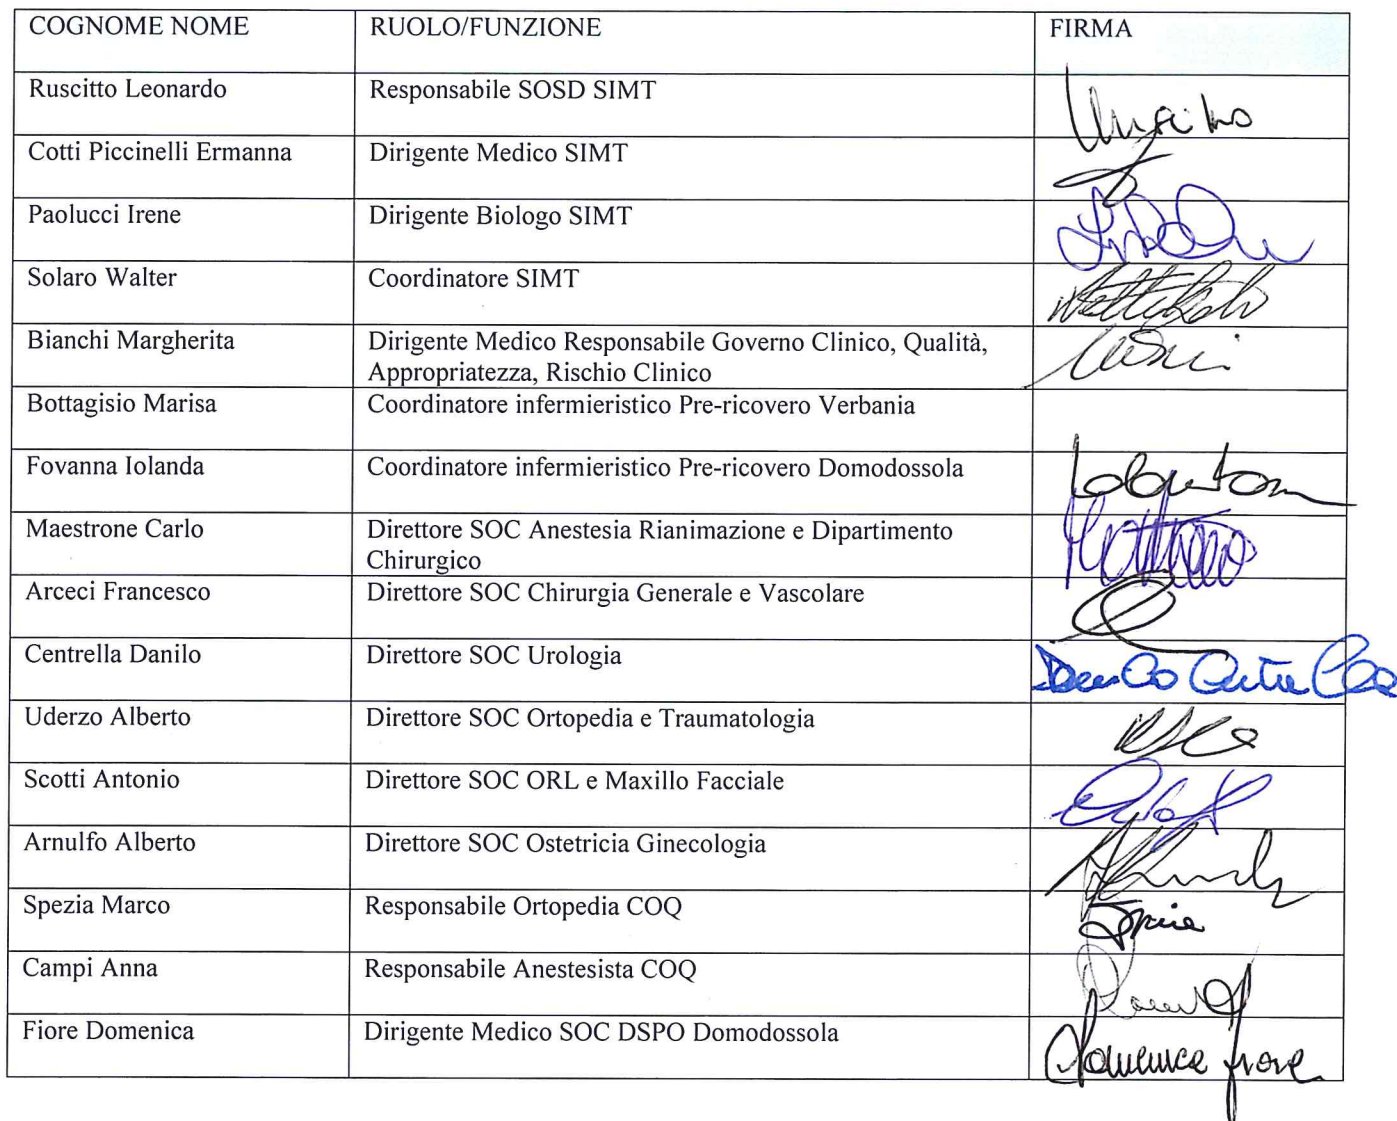 COGNOME NOME RUOLO/FUNZIONE FIRMA
Ruscitto Leonardo Responsabile SOSD SIMT
Cotti Piccinelli Ermanna Dirigente Medico SIMT
Paolucci Irene Dirigente Biologo SIMT
Solaro Walter Coordinatore SIMT
Bianchi Margherita Dirigente Medico Responsabile Governo Clinico, Qualità,
Appropriatezza, Rischio Clinico
Bottagisio Marisa Coordinatore infermieristico Pre-ricovero Verbania
Fovanna Iolanda Coordinatore infermieristico Pre-ricovero Domodossola
Maestrone Carlo Direttore SOC Anestesia Rianimazione e Dipartimento
Chirurgico
Arceci Francesco Direttore SOC Chirurgia Generale e Vascolare
Centrella Danilo Direttore SOC Urologia Danilo Centrella
Uderzo Alberto Direttore SOC Ortopedia e Traumatologia
Scotti Antonio Direttore SOC ORL e Maxillo Facciale
Arnulfo Alberto Direttore SOC Ostetricia Ginecologia
Spezia Marco Responsabile Ortopedia COQ
Campi Anna Responsabile Anestesista COQ
Fiore Domenica Dirigente Medico SOC DSPO Domodossola Domenica Fiore